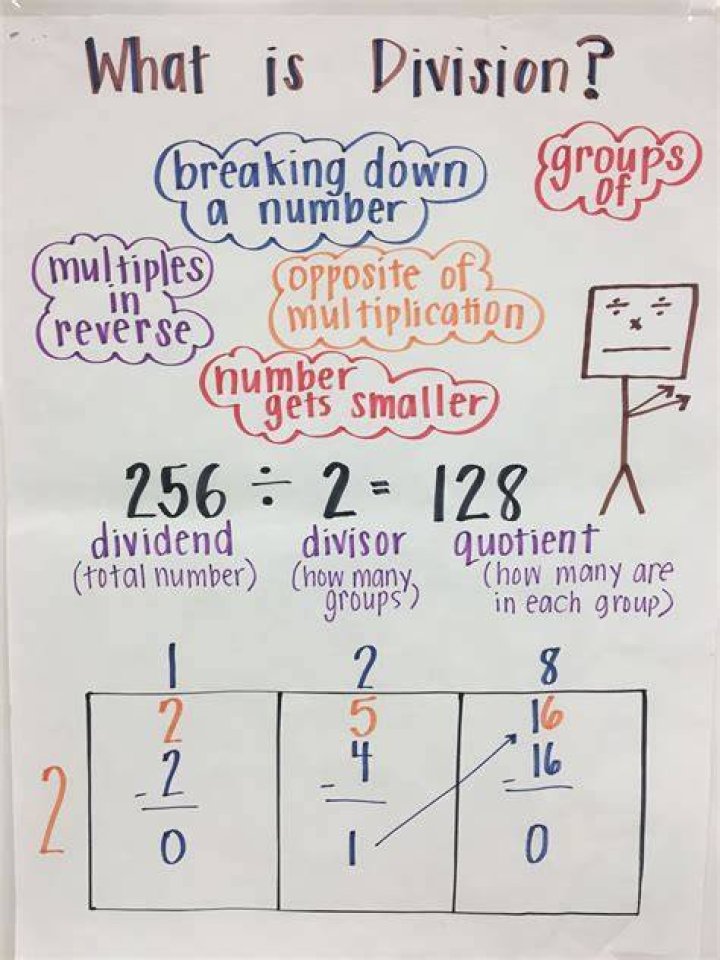 What is Division?
breaking down
a number
groups
of
multiples
in
reverse
opposite of
multiplication
number
gets smaller
÷ ÷
x
256 ÷ 2 = 128
dividend divisor quotient
(total number) (how many groups) (how many are in each group)
1 2 8
2 5 16
- 2 - 4 - 16
0 1 0
2